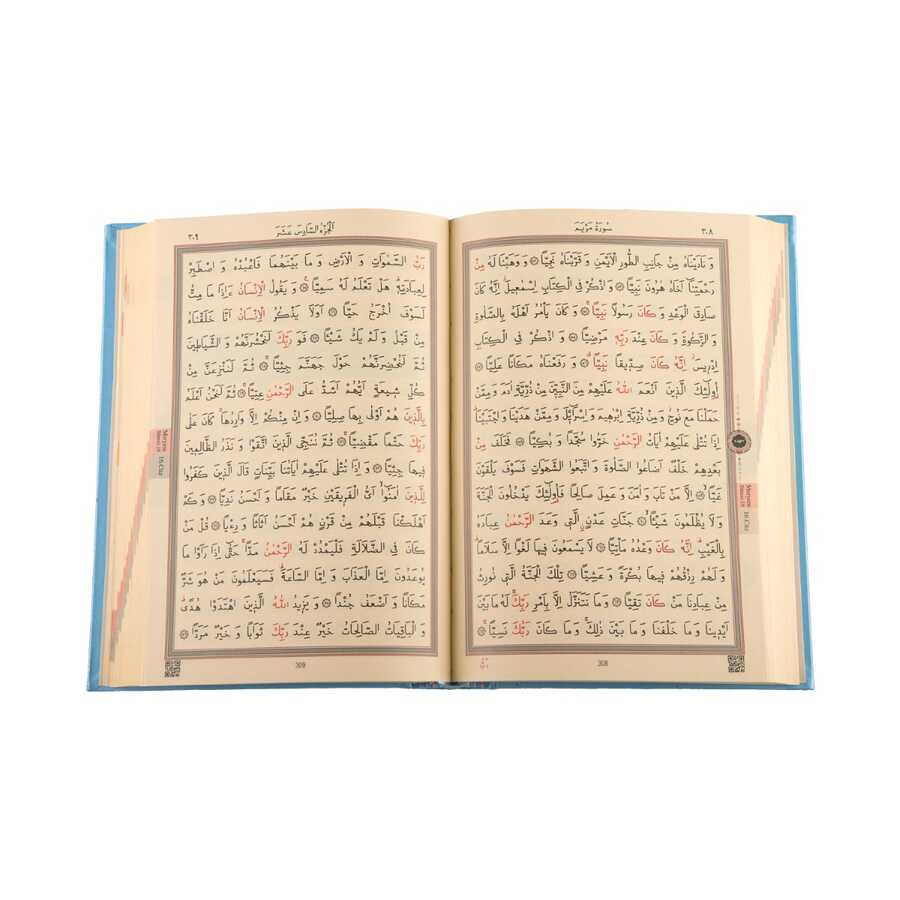 سُورَةُ مَرْيَمَ ٣٠٨
وَنَادَيْنَاهُ مِنْ جَانِبِ الطُّورِ الْاَيْمَنِ وَقَرَّبْنَاهُ نَجِيًّا ﴿٥٢﴾ وَوَهَبْنَا لَهُ مِنْ
رَحْمَتِنَٓا اَخَاهُ هٰرُونَ نَبِيًّا ﴿٥٣﴾ وَاذْكُرْ فِي الْكِتَابِ اِسْمٰع۪يلَ اِنَّهُ كَانَ
صَادِقَ الْوَعْدِ وَكَانَ رَسُولًا نَبِيًّا ﴿٥٤﴾ وَكَانَ يَأْمُرُ اَهْلَهُ بِالصَّلٰوةِ
وَالزَّكٰوةِ وَكَانَ عِنْدَ رَبِّه۪ مَرْضِيًّا ﴿٥٥﴾ وَاذْكُرْ فِي الْكِتَابِ
اِدْر۪يسَ اِنَّهُ كَانَ صِدّ۪يقًا نَبِيًّا ﴿٥٦﴾ وَرَفَعْنَاهُ مَكَانًا عَلِيًّا ﴿٥٧﴾
اُو۬لٰٓئِكَ الَّذ۪ينَ اَنْعَمَ اللّٰهُ عَلَيْهِمْ مِنَ النَّبِيّ۪نَ مِنْ ذُرِّيَّةِ اٰدَمَ وَمِمَّنْ
حَمَلْنَا مَعَ نُوحٍ وَمِنْ ذُرِّيَّةِ اِبْرٰه۪يمَ وَاِسْرَٓائ۪لَ وَمِمَّنْ هَدَيْنَا وَاجْتَبَيْنَا
اِذَا تُتْلٰى عَلَيْهِمْ اٰيَاتُ الرَّحْمٰنِ خَرُّوا سُجَّدًا وَبُكِيًّا ﴿٥٨﴾ فَخَلَفَ مِنْ
بَعْدِهِمْ خَلْفٌ اَضَاعُوا الصَّلٰوةَ وَاتَّبَعُوا الشَّهَوَاتِ فَسَوْفَ يَلْقَوْنَ
غَيًّا ﴿٥٩﴾ اِلَّا مَنْ تَابَ وَاٰمَنَ وَعَمِلَ صَالِحًا فَاُو۬لٰٓئِكَ يَدْخُلُونَ الْجَنَّةَ
وَلَا يُظْلَمُونَ شَيْـًٔا ﴿٦٠﴾ جَنَّاتِ عَدْنٍ الَّت۪ي وَعَدَ الرَّحْمٰنُ عِبَادَهُ
بِالْغَيْبِ اِنَّهُ كَانَ وَعْدُهُ مَأْتِيًّا ﴿٦١﴾ لَا يَسْمَعُونَ ف۪يهَا لَغْوًا اِلَّا سَلَامًا
وَلَهُمْ رِزْقُهُمْ ف۪يهَا بُكْرَةً وَعَشِيًّا ﴿٦٢﴾ تِلْكَ الْجَنَّةُ الَّت۪ي نُورِثُ
مِنْ عِبَادِنَا مَنْ كَانَ تَقِيًّا ﴿٦٣﴾ وَمَا نَتَنَزَّلُ اِلَّا بِاَمْرِ رَبِّكَ لَهُ مَا بَيْنَ
اَيْد۪ينَا وَمَا خَلْفَنَا وَمَا بَيْنَ ذٰلِكَ وَمَا كَانَ رَبُّكَ نَسِيًّا ﴿٦٤﴾
رَبُّ
308
Meryem
Sûresi 19
16.Cüz
اَلْجُزْءُ السَّادِسَ عَشَرَ ٣٠٩
رَبُّ السَّمٰوَاتِ وَالْاَرْضِ وَمَا بَيْنَهُمَا فَاعْبُدْهُ وَاصْطَبِرْ
لِعِبَادَتِه۪ هَلْ تَعْلَمُ لَهُ سَمِيًّا ﴿٦٥﴾ وَيَقُولُ الْاِنْسَانُ ءَاِذَا مَا مِتُّ
لَسَوْفَ اُخْرَجُ حَيًّا ﴿٦٦﴾ اَوَلَا يَذْكُرُ الْاِنْسَانُ اَنَّا خَلَقْنَاهُ
مِنْ قَبْلُ وَلَمْ يَكُ شَيْـًٔا ﴿٦٧﴾ فَوَرَبِّكَ لَنَحْشُرَنَّهُمْ وَالشَّيَاط۪ينَ
ثُمَّ لَنُحْضِرَنَّهُمْ حَوْلَ جَهَنَّمَ جِثِيًّا ﴿٦٨﴾ ثُمَّ لَنَنْزِعَنَّ مِنْ
كُلِّ ش۪يعَةٍ اَيُّهُمْ اَشَدُّ عَلَى الرَّحْمٰنِ عِتِيًّا ﴿٦٩﴾ ثُمَّ لَنَحْنُ اَعْلَمُ
بِالَّذ۪ينَ هُمْ اَوْلٰى بِهَا صِلِيًّا ﴿٧٠﴾ وَاِنْ مِنْكُمْ اِلَّا وَارِدُهَا كَانَ عَلٰى
رَبِّكَ حَتْمًا مَقْضِيًّا ﴿٧١﴾ ثُمَّ نُنَجِّي الَّذ۪ينَ اتَّقَوْا وَنَذَرُ الظَّالِم۪ينَ
ف۪يهَا جِثِيًّا ﴿٧٢﴾ وَاِذَا تُتْلٰى عَلَيْهِمْ اٰيَاتُنَا بَيِّنَاتٍ قَالَ الَّذ۪ينَ كَفَرُوا
لِلَّذ۪ينَ اٰمَنُوا اَيُّ الْفَر۪يقَيْنِ خَيْرٌ مَقَامًا وَاَحْسَنُ نَدِيًّا ﴿٧٣﴾ وَكَمْ
اَهْلَكْنَا قَبْلَهُمْ مِنْ قَرْنٍ هُمْ اَحْسَنُ اَثَاثًا وَرِءْيًا ﴿٧٤﴾ قُلْ مَنْ
كَانَ فِي الضَّلَالَةِ فَلْيَمْدُدْ لَهُ الرَّحْمٰنُ مَدًّا حَتّٰٓى اِذَا رَاَوْا مَا
يُوعَدُونَ اِمَّا الْعَذَابَ وَاِمَّا السَّاعَةَ فَسَيَعْلَمُونَ مَنْ هُوَ شَرٌّ
مَكَانًا وَاَضْعَفُ جُنْدًا ﴿٧٥﴾ وَيَز۪يدُ اللّٰهُ الَّذ۪ينَ اهْتَدَوْا هُدًى
وَالْبَاقِيَاتُ الصَّالِحَاتُ خَيْرٌ عِنْدَ رَبِّكَ ثَوَابًا وَخَيْرٌ مَرَدًّا ﴿٧٦﴾
309
Meryem
Sûresi 19
16.Cüz